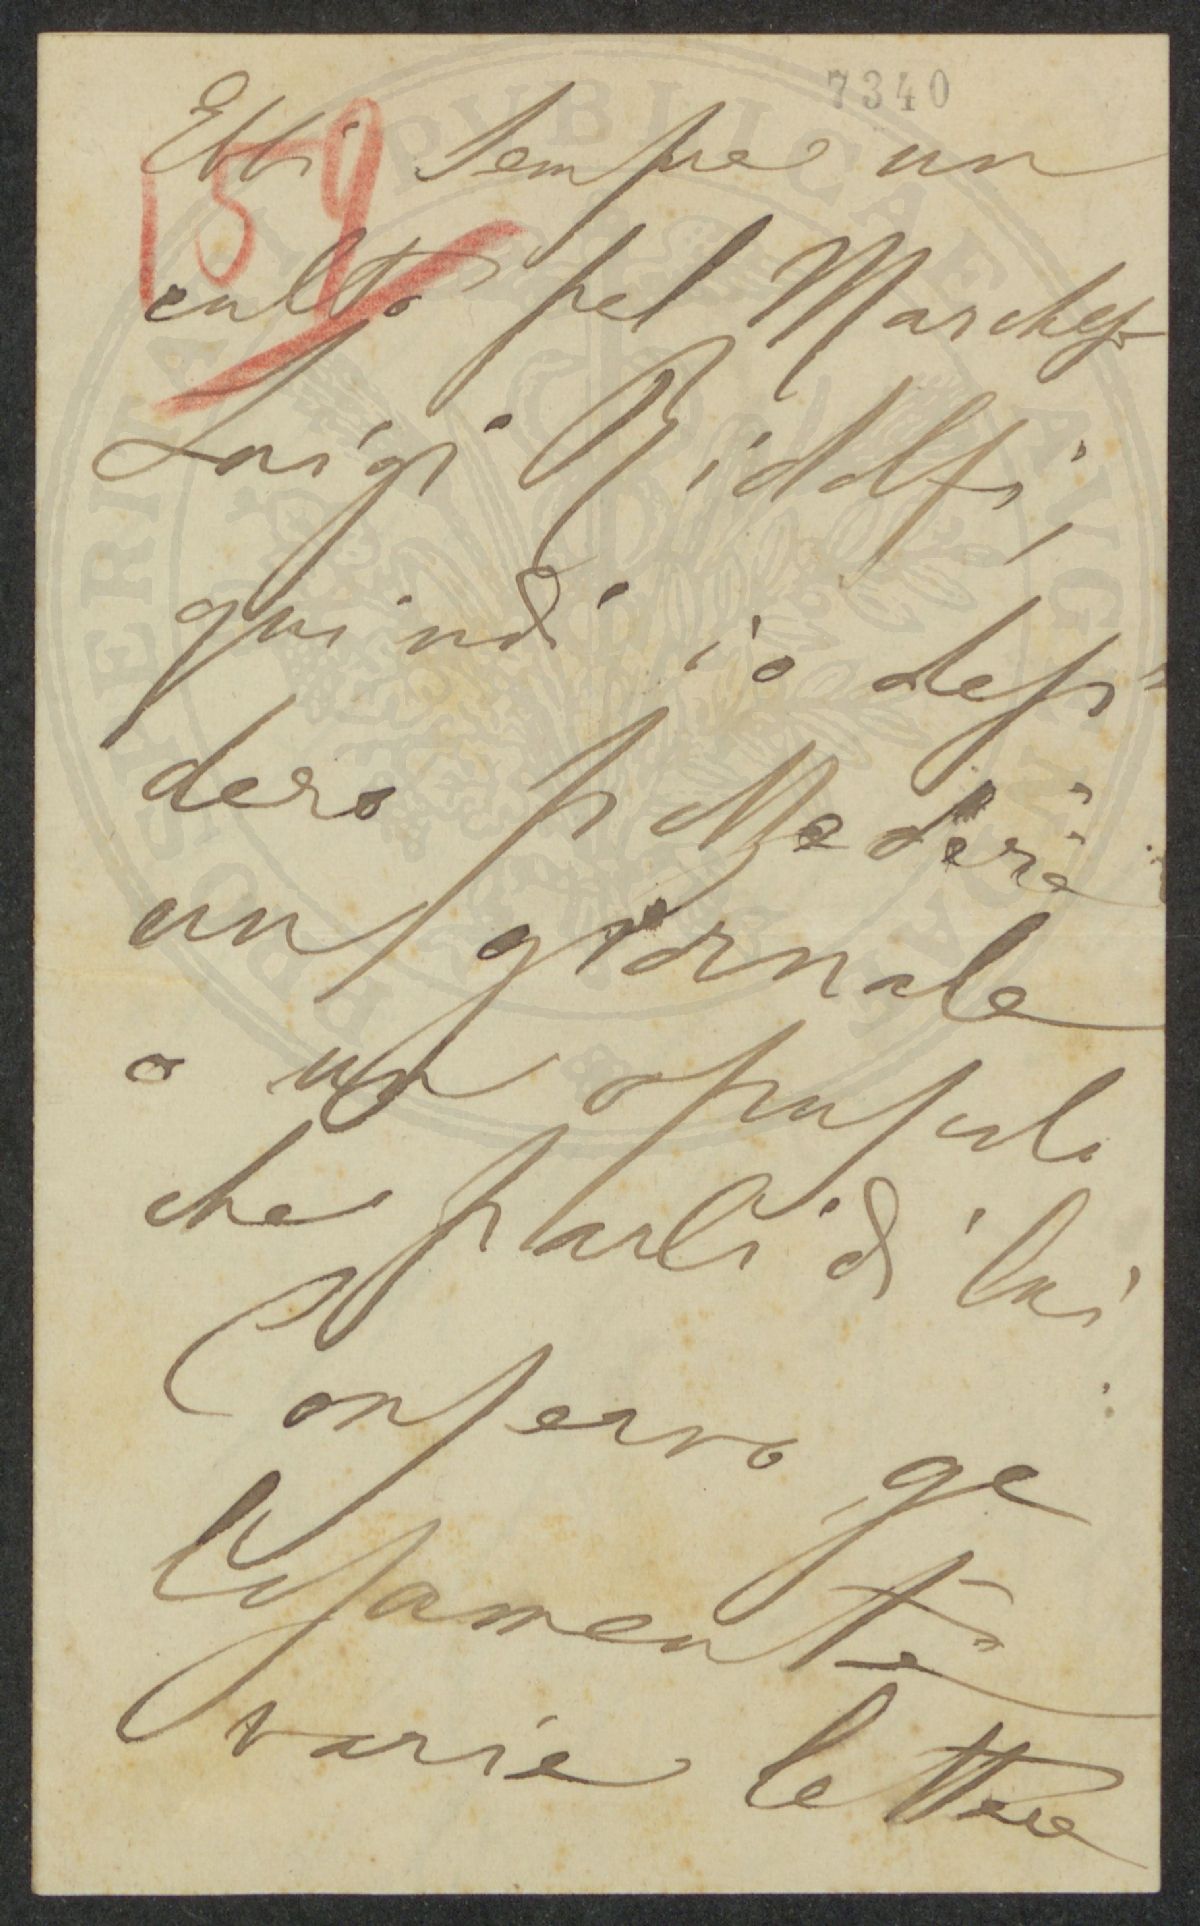 7340
159
Ebbi sempre un
culto pel Marchese
Luigi Ridolfi,
quindi io desi
dero possedere
un giornale
o un opuscolo
che parli di lui
Conservo ge
losamente
varie lettere
POSTERITATI PVBLICAE AVG